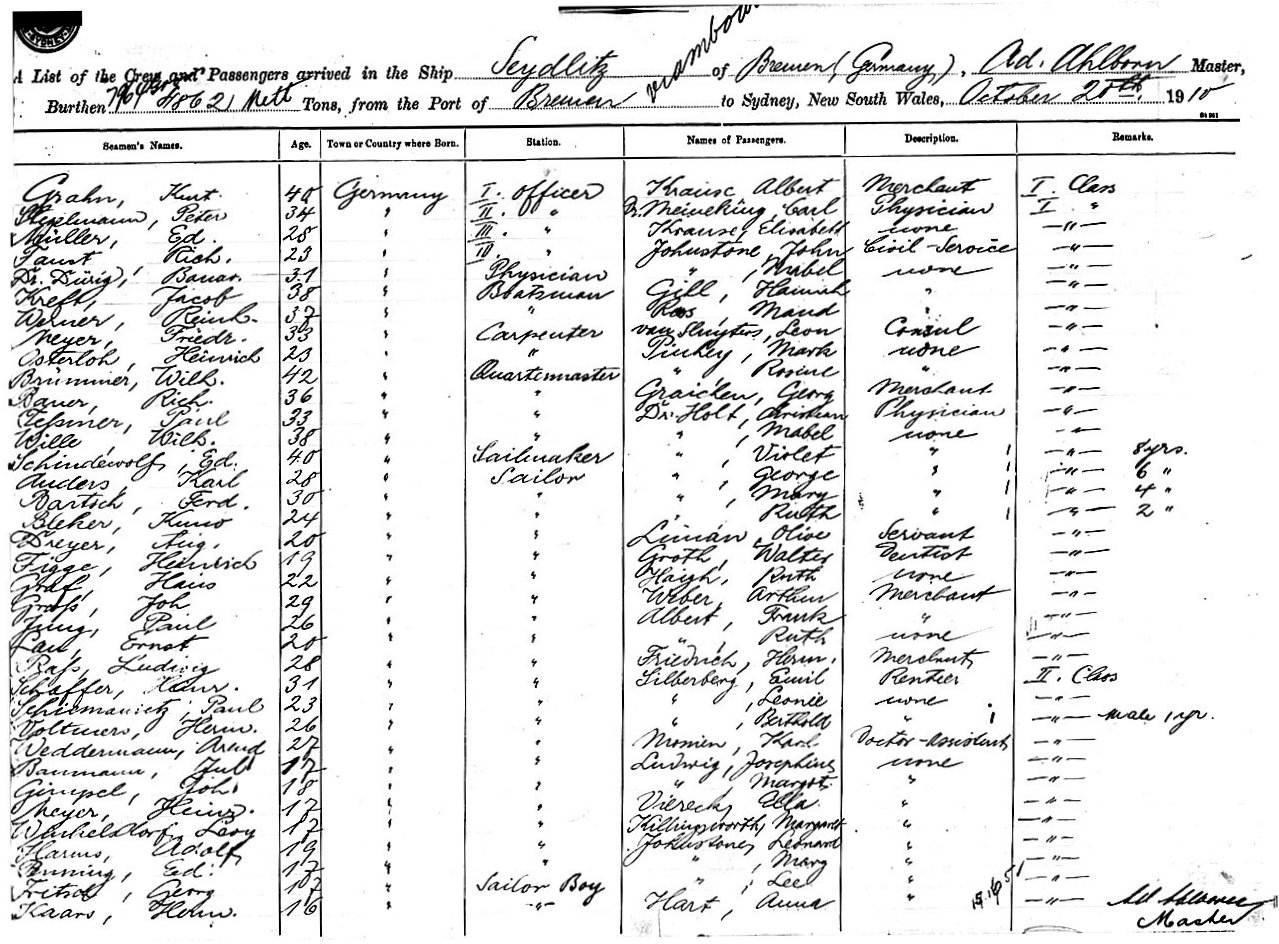 SYDNEY
A List of the Crew and Passengers arrived in the Ship Seydlitz of Bremen (Germany), Ad. Ahlborn Master,
Burthen 4862 Nett Tons, from the Port of Bremen to Sydney, New South Wales, October 28th. 1910
Seamen's Names. Age. Town or Country where Born. Station. Names of Passengers. Description. Remarks.
Grahn, Kurt. 40 Germany I. Officer Krause, Albert Merchant I. Class
Peter 34 " II. " Dr. Meineking, Carl Physician I. "
Müller, Ed. 28 " III. " Krause, Elisabeth none —"—
Faust, Rich. 23 " IV. " Johnstone, John Civil-Service —"—
Dr. Dürig, 31 " Physician " , Mabel none —"—
Kreft, Jacob 38 " Boatsman Gill, Heinrich " —"—
Werner, Reinh. 37 " " Ross, Maud " —"—
Meyer, Friedr. 33 " Carpenter van Sluyters, Leon Consul —"—
Osterloh, Heinrich 23 " " Mark none —"—
Brümmer, Wilh. 42 " Quartermaster " , " —"—
Bauer, Rich. 36 " " Graichen, Georg Merchant —"—
Teßmer, Paul 33 " " Dr. Holt, Christian Physician —"—
Wille, Wilh. 38 " " " , Mabel none —"—
Schindewolf, Ed. 40 " Sailmaker " , Violet " 1 —"— 8 yrs.
Anders, Karl 28 " Sailor " , George " 1 —"— 6 "
Bartsch, Ferd. 30 " " " , Mary " 1 —"— 4 "
Bleker, Kuno 24 " " " , Ruth " 1 —"— 2 "
Dreyer, Aug. 20 " " Olive Servant —"—
Figge, Heinrich 19 " " Groth, Walter Dentist —"—
Graf, Hans 22 " " Haigh, Ruth none —"—
Graß, Joh 29 " " Weber, Arthur Merchant —"—
Jung, Paul 26 " " Albert, Frank " —"—
Lau, Ernst 20 " " " , Ruth none —"—
Raß, Ludwig 28 " " Friedrich, Herm. Merchant —"—
Schäffer, Heinr. 31 " " Silberberg, Emil Rentier II. Class
Paul 23 " " " , Leonie none —"—
Voltmers, Herm. 26 " " " , Berthold " 1 —"— Male 1 yr.
Weddermann, Arend 27 " " Karl Doctor-assistent —"—
Baumann, Jul 17 " " Ludwig, Josephine none —"—
Gimpel, Joh. 18 " " " , Margot " —"—
Meyer, Heinz. 17 " " Viereck, Ella. " —"—
17 " " Killingsworth, Margaret " —"—
Harms, Adolf 19 " " Johnstone, Leonard " —"—
Ed. 17 " " " , Mary " —"—
Fritsch, Georg 17 " Sailor Boy " , Lee " —"—
Kaars, Herm. 16 " —"— Hart, Anna " —"—
Master